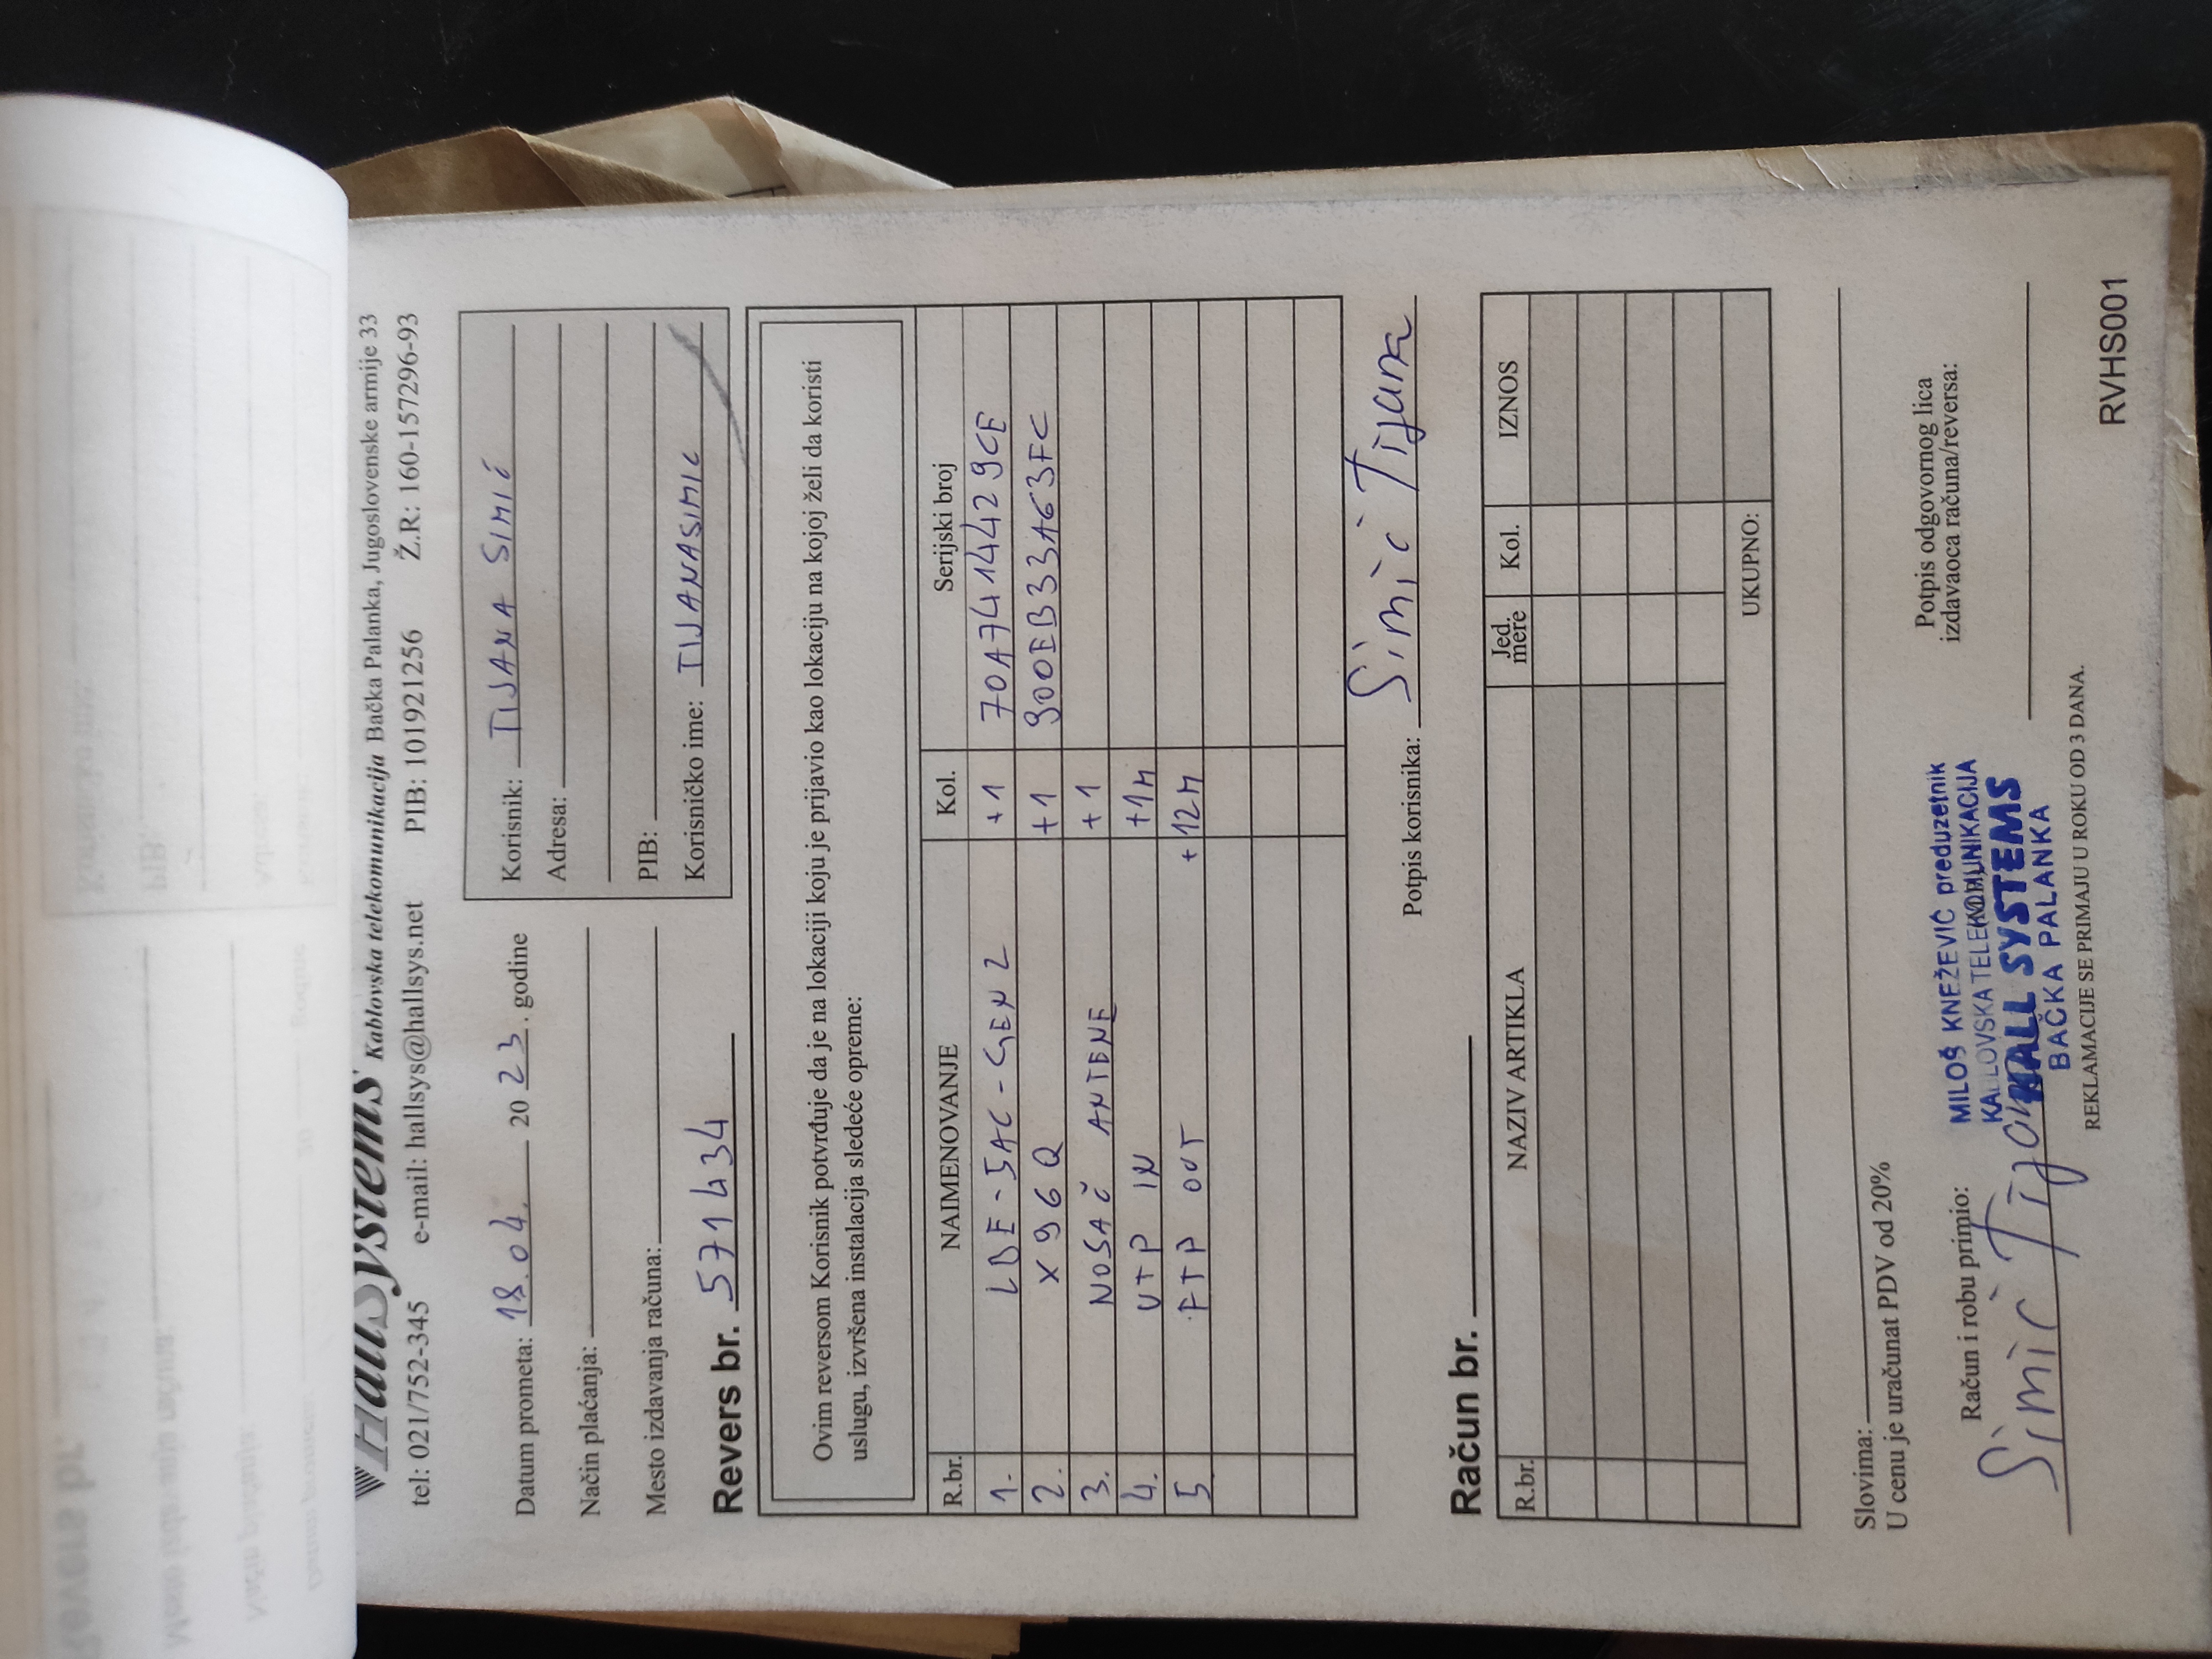 HallSystems Kablovska telekomunikacija Bačka Palanka, Jugoslovenske armije 33
tel: 021/752-345 e-mail: hallsys@hallsys.net PIB: 101921256 Ž.R: 160-157296-93
Datum prometa: 18.04. 2023. godine
Način plaćanja:
Mesto izdavanja računa:
Korisnik: TIJANA SIMIĆ
Adresa:
PIB:
Korisničko ime: TIJANASIMIC
Revers br. 571434
Ovim reversom Korisnik potvrđuje da je na lokaciji koju je prijavio kao lokaciju na kojoj želi da koristi
uslugu, izvršena instalacija sledeće opreme:
R.br. NAIMENOVANJE Kol. Serijski broj
1. LBE-5AC-GEN2 +1 70A7414429CE
2. X96Q +1 900EB33A63FC
3. NOSAČ ANTENE +1
4. UTP IN +1M
5. FTP OUT +12M
Potpis korisnika: Simić Tijana
Račun br.
R.br. NAZIV ARTIKLA Jed. mere Kol. IZNOS
UKUPNO:
Slovima:
U cenu je uračunat PDV od 20%
Račun i robu primio:
Simić Tijana
MILOŠ KNEŽEVIĆ preduzetnik
KABLOVSKA TELEKOMUNIKACIJA
HALL SYSTEMS
BAČKA PALANKA
Potpis odgovornog lica
izdavaoca računa/reversa:
REKLAMACIJE SE PRIMAJU U ROKU OD 3 DANA.
RVHS001